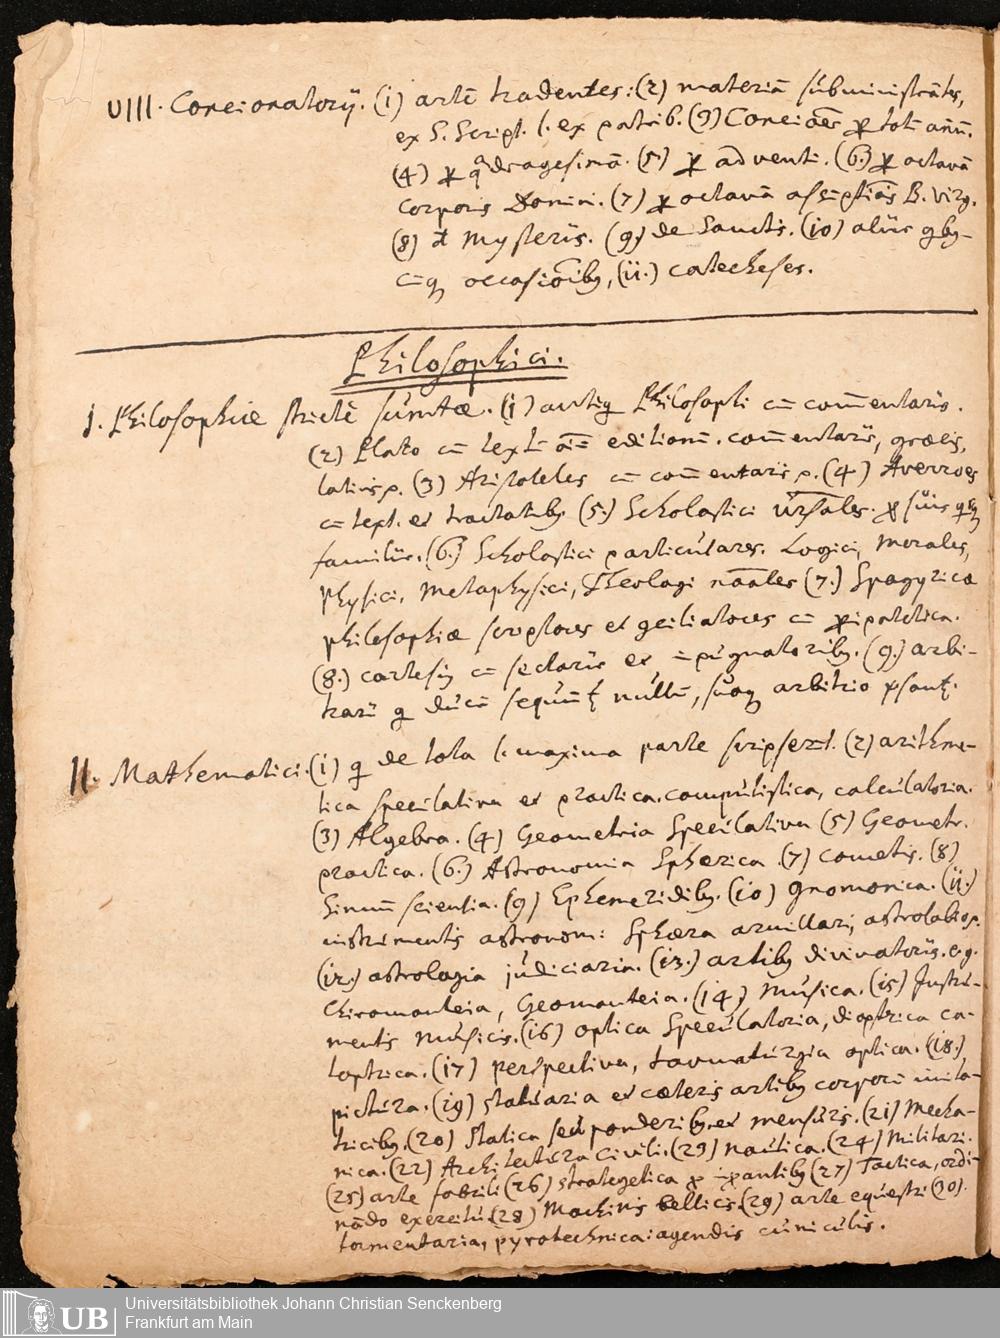 VIII. Concionatorij. (1) artē tradentes: (2) materiā subministrātes,
ex S. Script. l. ex patrib. (3) Concioēs ꝑ totū annū.
(4) ꝑ qdragesimā. (5.) ꝑ adventū. (6.) ꝑ octavā
Corporis Domini. (7) ꝑ octavā assūptiōis B. Virg.
(8) Mysteriis. (9.) de Sanctis. (10) aliis qby-
cūq occasiōiby, (11.) catecheses.
Philosophici.
I. Philosophiæ strictè sumtæ. (1) antiq Philosophi cū com̄entariis.
(2) Plato cū textū oīū editionū. com̄entariis, græcis,
latinisq. (3) Aristoteles cū com̄entarisq. (4) Averroes
cū text. et tractatiby (5.) Scholastici ūrsales. ꝑ suis qsq
familiis. (6.) Scholastici particulares. Logici, Morales,
Physici, Metaphysici, Theologi nāales (7.) Spagyricæ
philosophiæ scriptores et cōciliatores cū ꝑipatetica.
(8.) cartesiy cū sectariis et īpugnatoriby. (9.) arbi-
trarii q ducē sequūt nullū, suoq arbitrio
II. Mathematici. (1) q de tota l. maxima parte scripserūt. (2) arithme-
tica speculativa et practica. computistica, calculatoria.
(3) Algebra. (4) Geometria Speculativa (5) Geometr.
practica. (6.) Astronomia Sphærica (7) Cometis. (8)
Sinuum scientia. (9) Ephemeridiby. (10) Gnomonica. (11.)
instrumentis astronom: Sphæra armillari, astrolabioq.
(12.) astrologia judiciaria. (13.) artiby divinatoriis. e.g.
Chiromanteia, Geomanteia. (14.) Musica. (15) Instru-
mentis Musicis. (16) optica Speculatoria, dioptrica ca-
toptrica. (17) perspectiva, taumaturgia optica. (18.)
pictura. (19) statuaria et cæteris artiby corporū imita-
triciby. (20) Statica seu ponderiby et mensuris. (21) Mecha-
nica. (22) Architectura Civili. (23) nautica. (24) Militari.
(25) arte fabrili (26) strategetica ꝑ īꝑantiby (27) Tactica, ordi-
nādo exercitu (28) Machinis bellicis (29) arte equestri (30).
tormentaria, pyrotechnica: agendis cuniculis.
Universitätsbibliothek Johann Christian Senckenberg
UB Frankfurt am Main